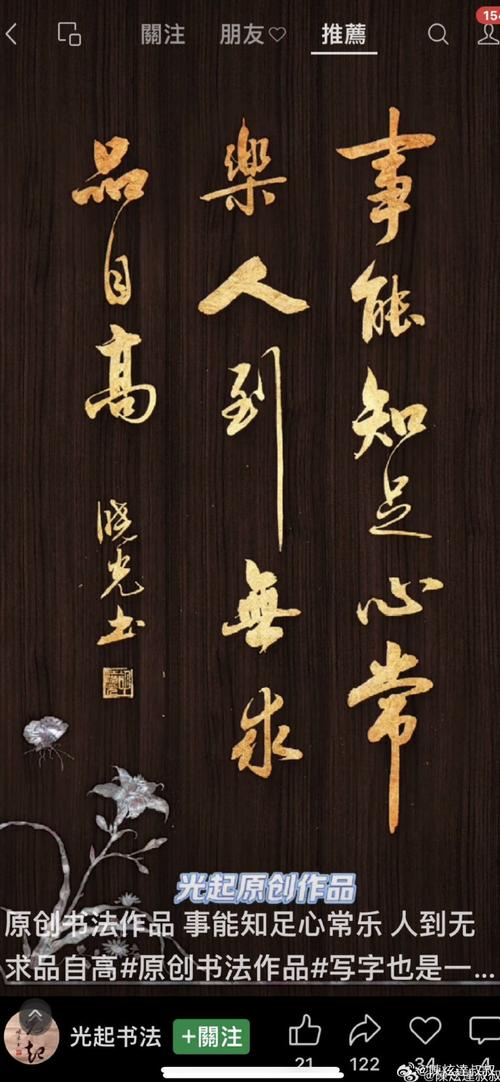 關注 朋友♡ 推薦
154
事能知足心常
樂人到無求
品自高
晓光书
光起原创作品
原创书法作品 事能知足心常乐 人到无
求品自高#原创书法作品#写字也是一...
光起书法 +關注
21 122 34 4
@陳炫達叔叔